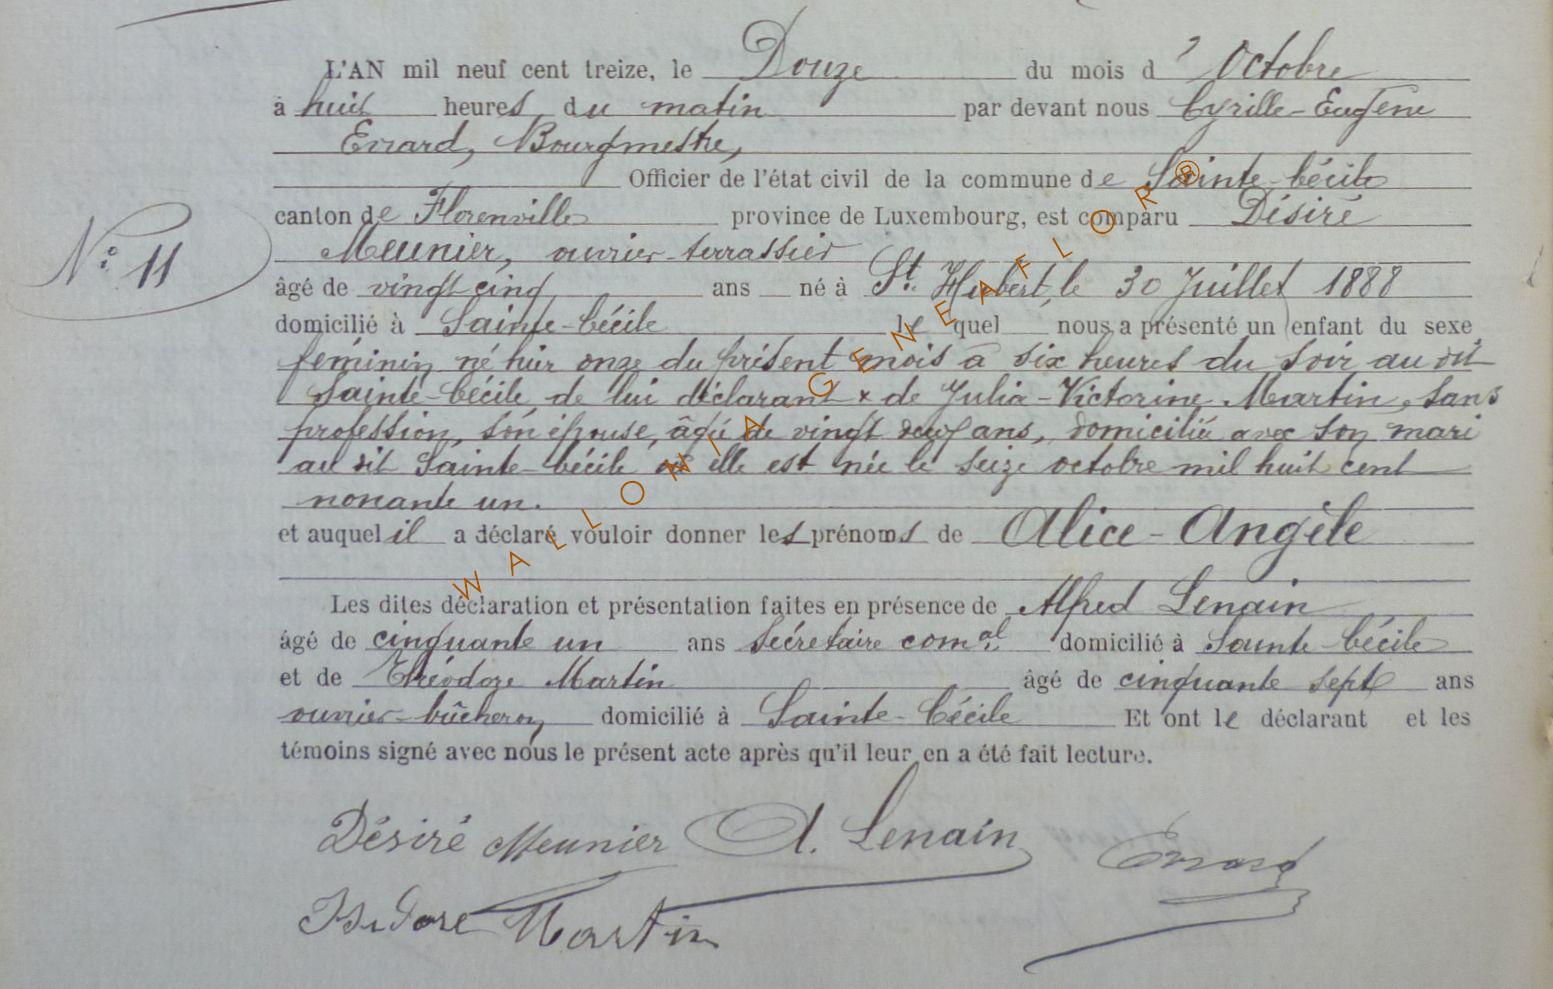 L'AN mil neuf cent treize, le Douze du mois d' Octobre
à huit heures du matin par devant nous Cyrille-Eugène
Evrard, Bourgmestre,
Officier de l'état civil de la commune de Sainte-Cécile
canton de Florenville province de Luxembourg, est comparu Désiré
Meunier, ouvrier-terrassier
N° 11
âgé de vingt cinq ans né à St. Hubert, le 30 Juillet 1888
domicilié à Sainte-Cécile lequel nous a présenté un enfant du sexe
féminin né hier onze du présent mois à six heures du soir au dit
Sainte-Cécile, de lui déclarant & de Julia-Victorine Martin, sans
profession, son épouse, âgée de vingt deux ans, domiciliée avec son mari
au dit Sainte-Cécile où elle est née le seize octobre mil huit cent
nonante un.
et auquel il a déclaré vouloir donner les prénoms de Alice-Angèle
Les dites déclaration et présentation faites en présence de Alfred Lenain
âgé de cinquante un ans secrétaire comal. domicilié à Sainte-Cécile
et de Martin âgé de cinquante sept ans
ouvrier-bûcheron domicilié à Sainte-Cécile Et ont le déclarant et les
témoins signé avec nous le présent acte après qu'il leur en a été fait lecture.
Désiré Meunier A. Lenain Evrard
Isidore Martin
WALLONIA GENEAFLOR®